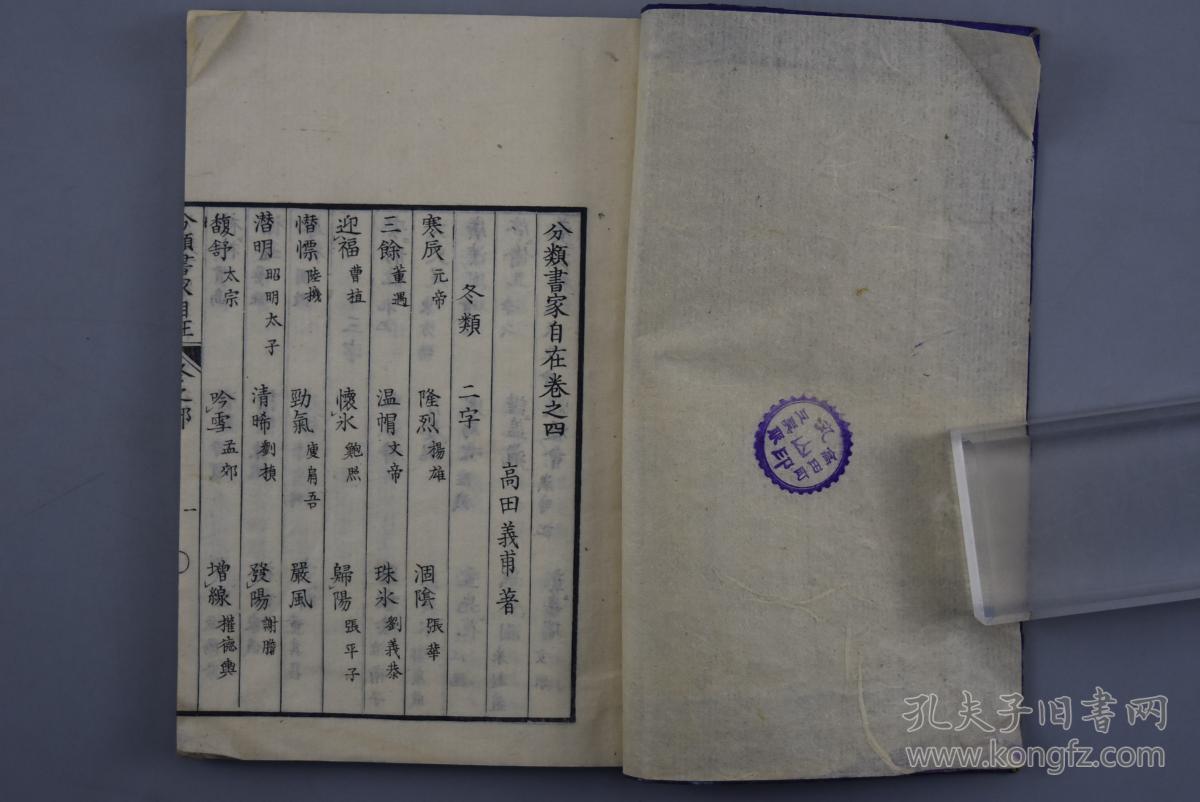 分類書家自在卷之四
高田義甫著
冬類 二字
寒辰 元帝 隆烈 揚雄 涸陰 張華
三餘 董遇 温帽 文帝 珠氷 劉義恭
迎福 曹植 懷氷 鮑照 歸陽 張平子
憯慄 陸機 勁氣 庾肩吾 嚴風
潛明 昭明太子 清晞 劉楨 發陽 謝瞻
馥舒 太宗 吟雪 孟郊 增線 權德輿
分類書家自在
一
孔夫子旧书网
www.kongfz.com